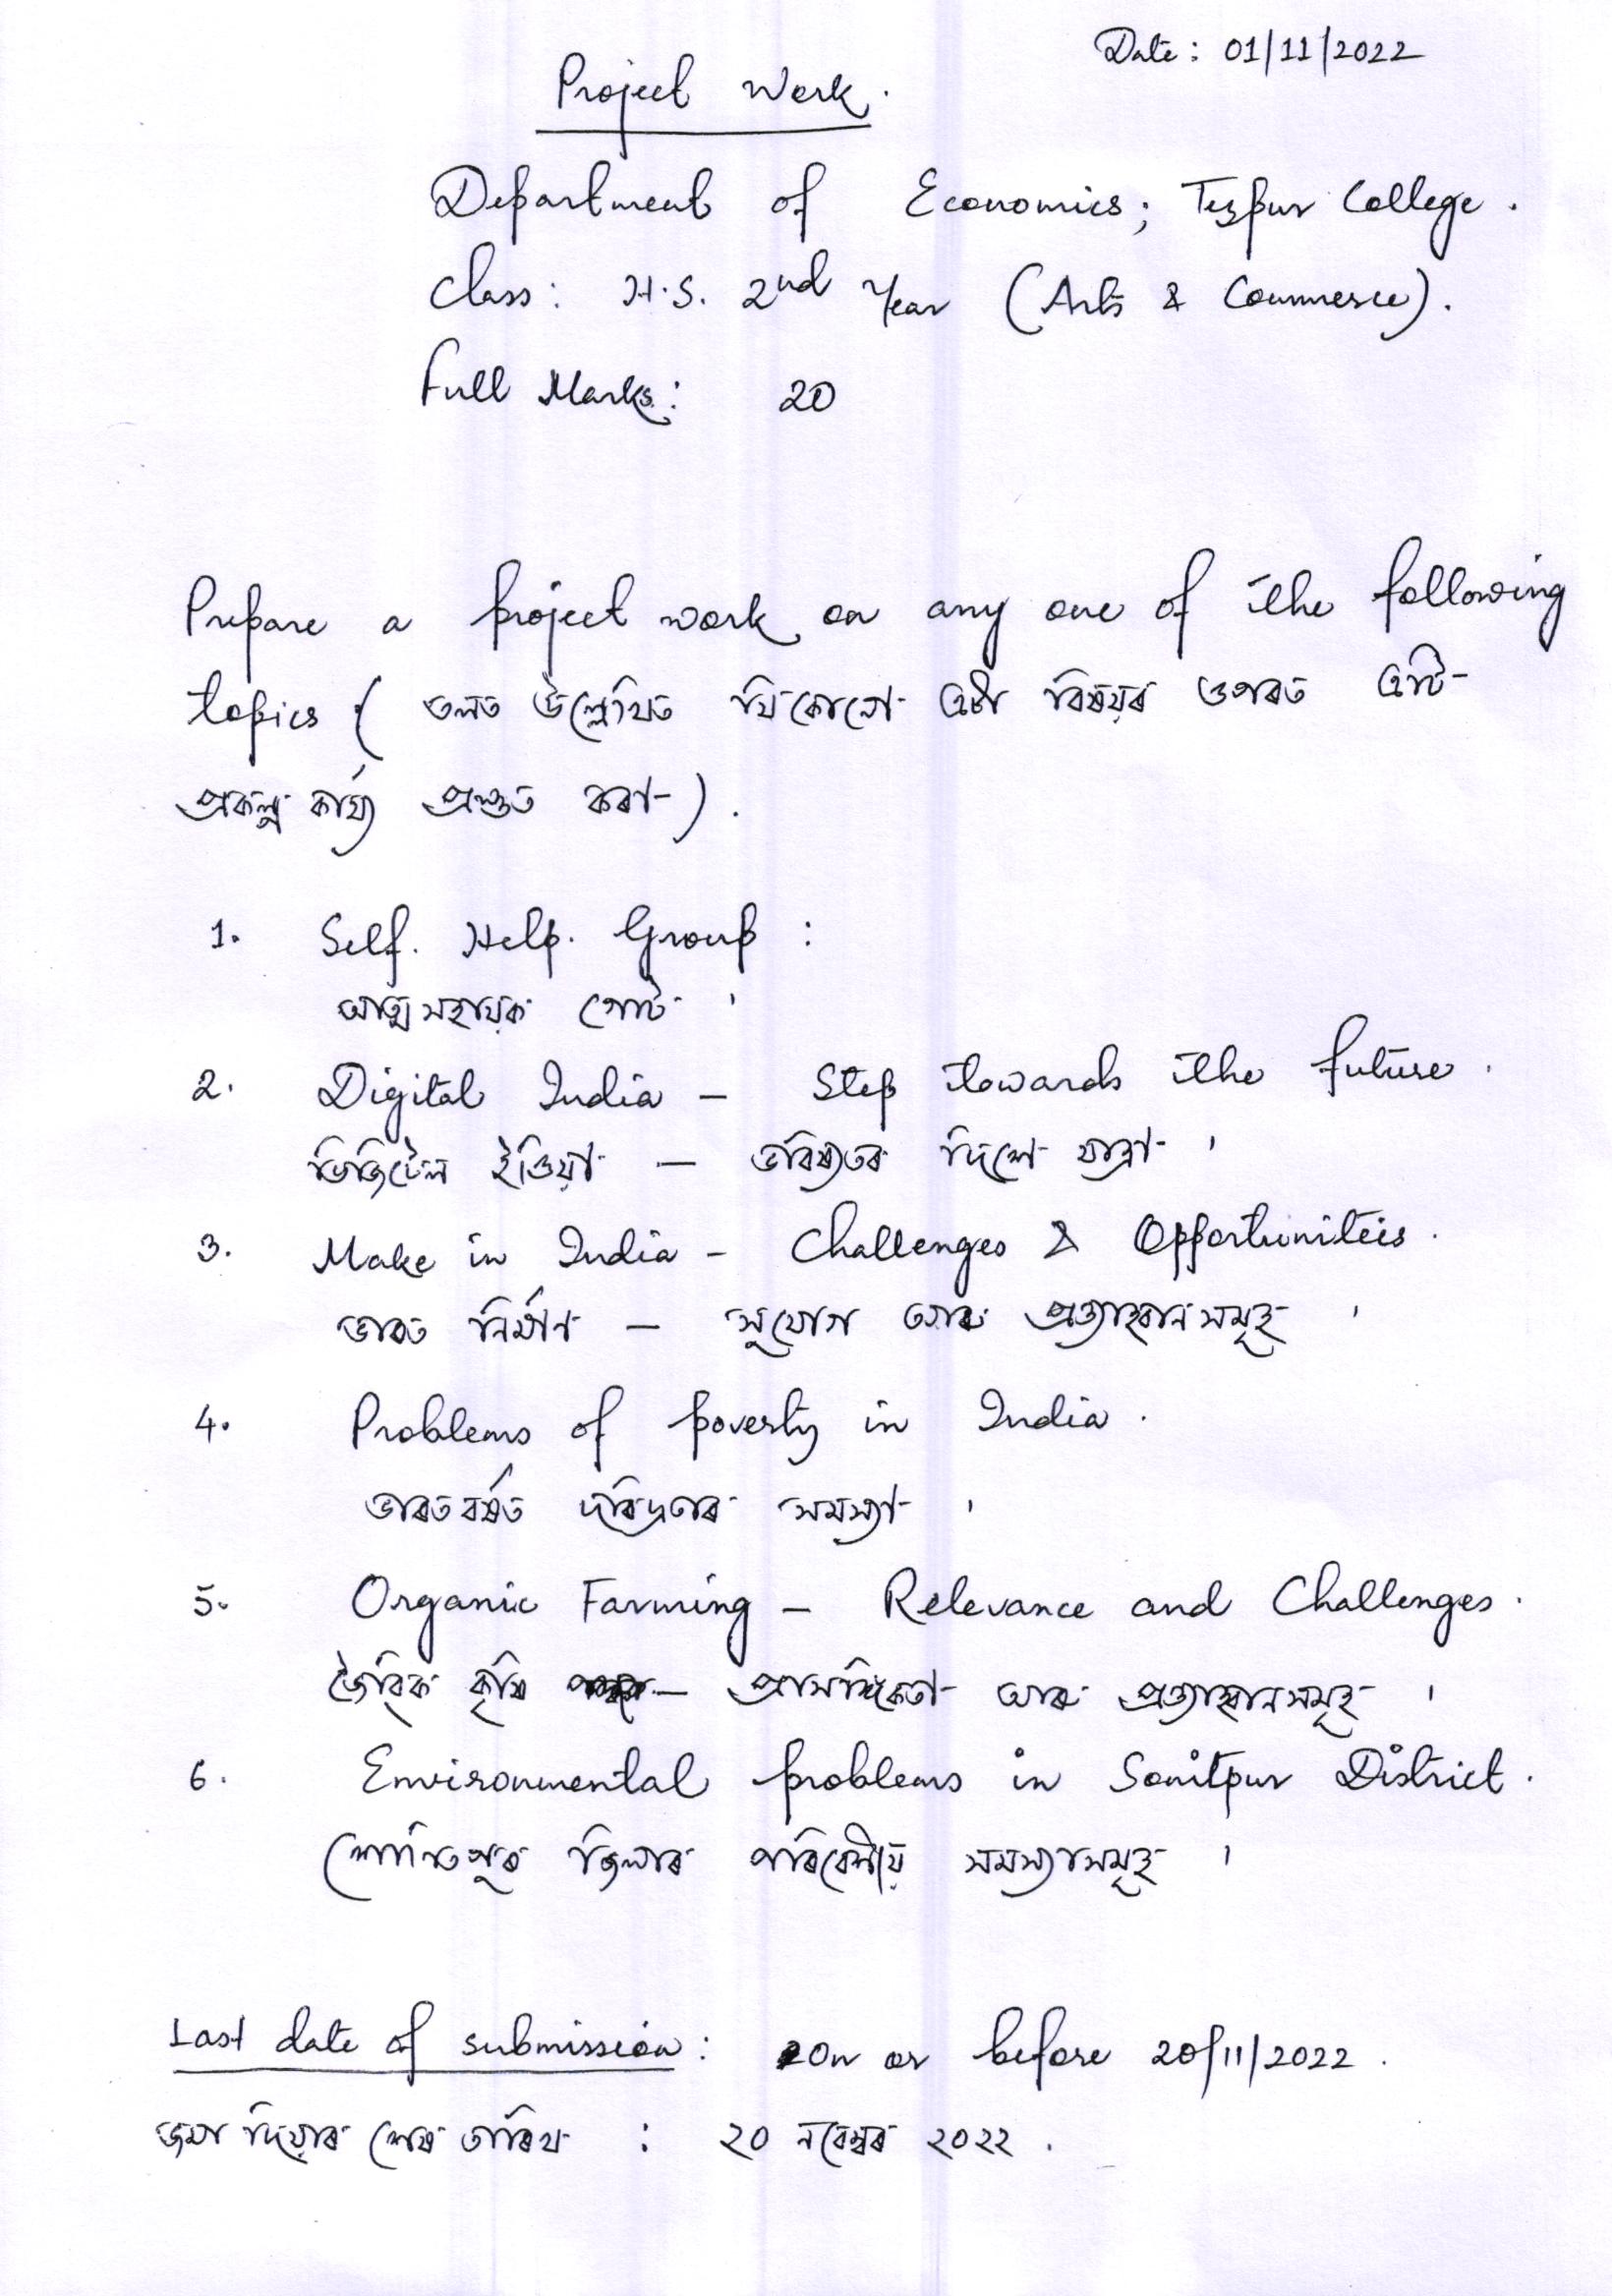 Date: 01/11/2022
Project Work.
Department of Economics; Tezpur College.
Class: H.S. 2nd Year (Arts & Commerce).
Full Marks: 20
Prepare a project work on any one of the following
topics ( তলত উল্লেখিত যিকোনো এটা বিষয়ৰ ওপৰত এটি
প্ৰকল্প কাৰ্য্য প্ৰস্তুত কৰা ).
1. Self. Help. Group :
আত্মসহায়ক গোট ।
2. Digital India – Step towards the future.
ডিজিটেল ইণ্ডিয়া – ভৱিষ্যতৰ দিশে যাত্ৰা ।
3. Make in India – Challenges & Opportunities.
ভাৰত নিৰ্মাণ – সুযোগ আৰু প্ৰত্যাহ্বানসমূহ ।
4. Problems of poverty in India.
ভাৰতবৰ্ষত দৰিদ্ৰতাৰ সমস্যা ।
5. Organic Farming – Relevance and Challenges.
জৈৱিক কৃষি – প্ৰাসংগিকতা আৰু প্ৰত্যাহ্বানসমূহ ।
6. Environmental problems in Sonitpur District.
শোণিতপুৰ জিলাৰ পৰিবেশীয় সমস্যাসমূহ ।
Last date of submission: On or before 20/11/2022.
জমা দিয়াৰ শেষ তাৰিখ : ২০ নৱেম্বৰ ২০২২.